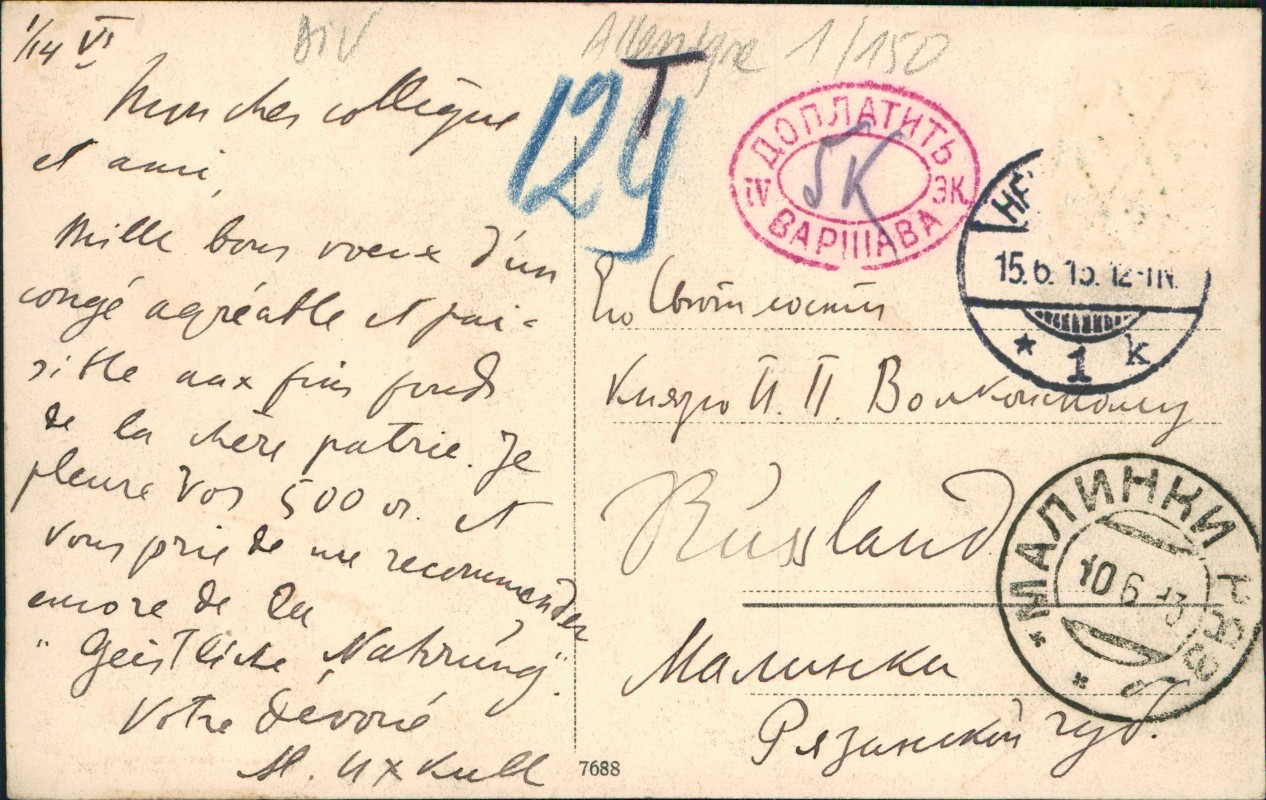 1/14 VI
Mon cher collègue
et ami,
Mille bons voeux d'un
congé agréable et pai-
sible aux fins fonds
de la chère patrie. Je
pleure vos 500 et
vous prie de me recommander
encore de la
"Geistliche Nahrung".
Votre dévoué
M. Uxkull
7688
1/150
12
T
ДОПЛАТИТЬ
IV 5К ЭК.
ВАРШАВА
15.6.13. 12-1N.
* 1 k
Его Светлости
Князю П. П. Волконскому
Russland
Малинки
Рязанской губ.
МАЛИНКИ РЯЗ. Г.
10 6 13